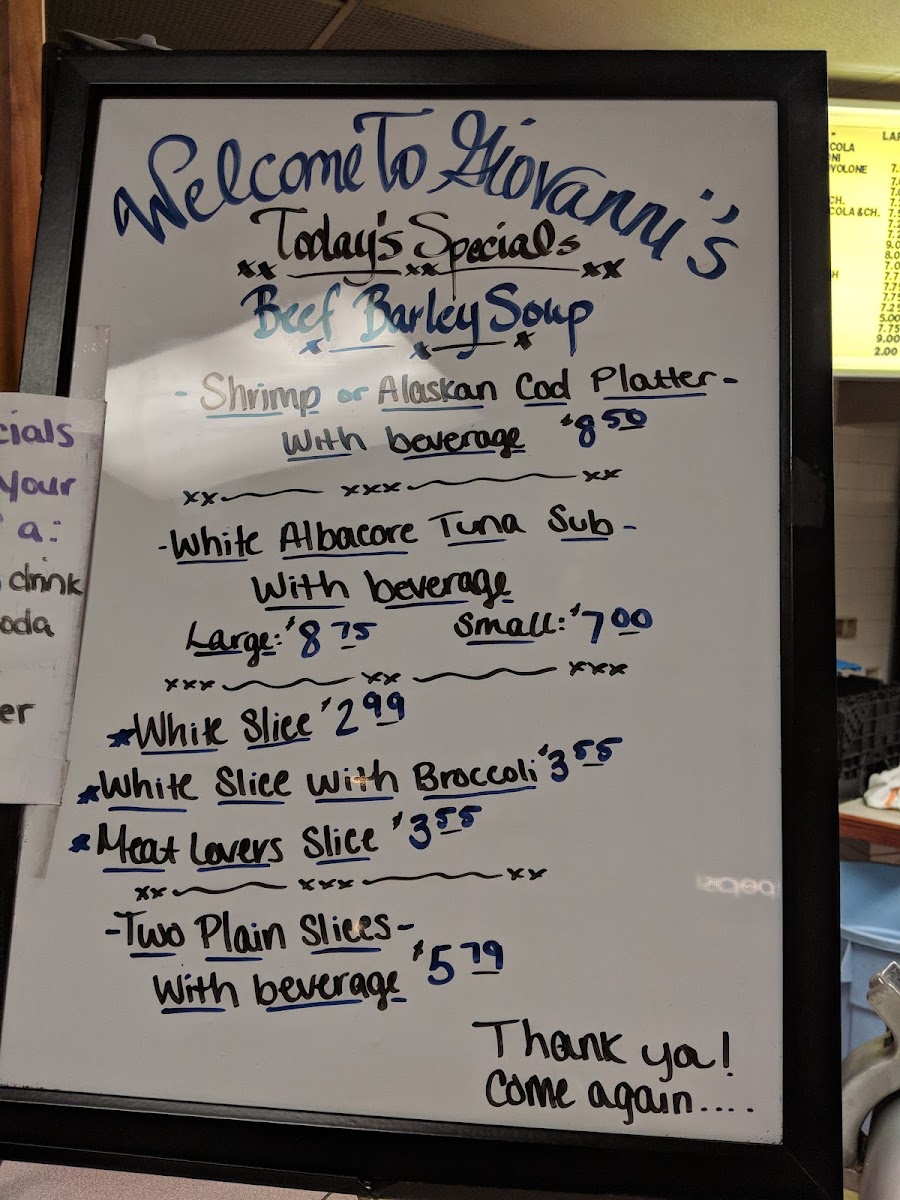 Welcome To Giovanni's
Today's Specials
Beef Barley Soup
- Shrimp or Alaskan Cod Platter -
With beverage $8 50
- White Albacore Tuna Sub -
With beverage
Large: $8 75 Small: $7 00
White Slice $2 99
White Slice with Broccoli $3 55
Meat Lovers Slice $3 55
- Two Plain Slices -
With beverage $5 79
Thank ya!
Come again....
cials
your
a:
drink
oda
er
LAR
COLA
ONI
OVOLONE
CH.
COLA & CH.
9.0
8.0
7.0
7.7
7.75
7.75
7.25
5.00
7.75
9.00
2.00